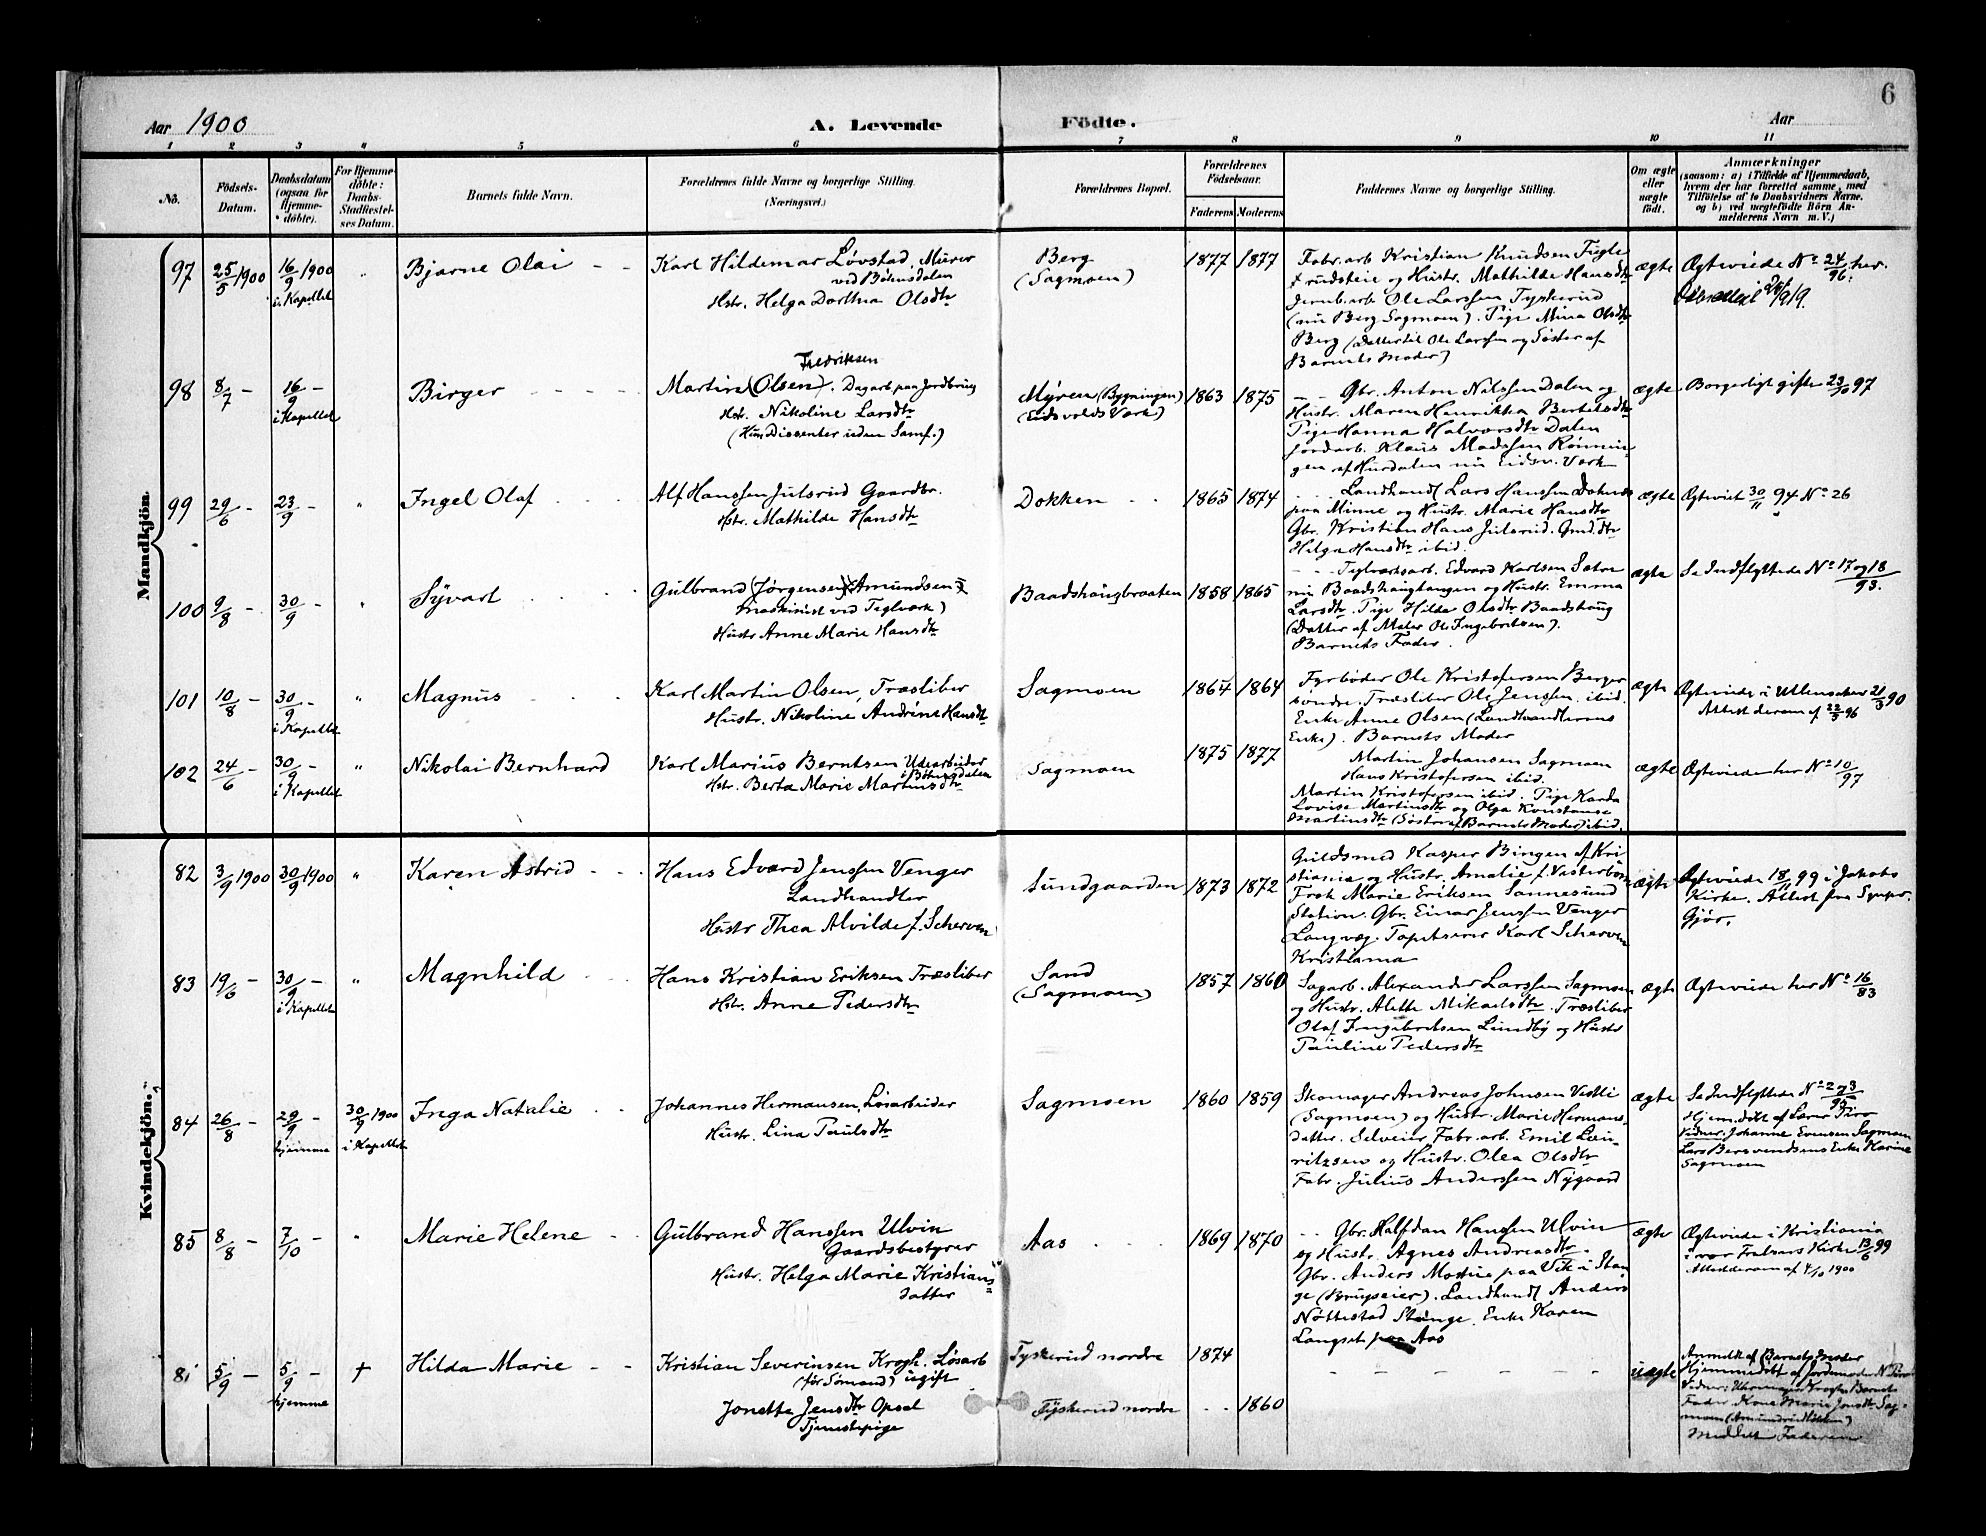 6
Aar 1900
A. Levende Födte.
Aar
1 2 3 4 5 6 7 8 9 10 11
No.
Födsels-
Datum.
Daabsdatum
(ogsaa for
Hjemme-
döbte).
For Hjemme-
döbte:
Daabs-
Stadfæstel-
ses Datum.
Barnets fulde Navn.
Forældrenes fulde Navne og borgerlige Stilling.
(Næringsvei.)
Forældrenes Bopæl.
Forældrenes
Födselsaar.
Faderens Moderens
Faddernes Navne og borgerlige Stilling.
Om ægte
eller
uægte
født.
Anmærkninger
(saasom: a) i Tilfælde af Hjemmedaab,
hvem der har forrettet samme, med
Tilföielse af to Daabsvidners Navne,
og b) ved uægtefödte Börn An-
melderens Navn m. V.)
Mandkjön.
97 25/5 1900 16/9 1900
i Kapellet
"
Bjarne Olai
Karl Hildemar Løvstad, Murer
ved Bøhnsdalen
Hstr. Helga Dorthea Olsdtr
Berg
(Sagmoen)
1877 1877
Fabr.arb Kristian Knudsen Fugle
og Hustr. Mathilde Hansdtr
Jernb.arb Ole Larssen Tyskerud
(nu Berg Sagmoen). Pige Mina Olsdtr
Berg (Datter til Ole Larssen og Søster af
Barnets Moder)
ægte
Ægteviede No 24/96 her.
98 8/7 - 16/9 -
i Kapellet
Birger
Fredriksen
Martin (Olsen). Dagarb paa Jordbrug
Hst. Nikoline Larsdtr
(Hun Dissenter uden Samf.)
Myren (Bygningen)
(Eidsvolds Værk)
1863 1875
Gbr. Anton Nilssen Dalen og
Hustr. Maren Henrikka Bertelsdtr
Pige Hanna Halvorsdtr Dalen
Jordarb. Klaus Madssen Rønnin-
gen af Hurdalen nu Eidsv. Værk
ægte
Borgerligt gifte 23/10 97
99 29/6 - 23/9 - "
Ingel Olaf
Alf Hanssen Julsrud Gaardbr.
Hstr. Mathilde Hansdtr
Dokken
1865 1874
Landhandl Lars Hanssen
paa Minne og Hustr. Marie Hansdtr
Gbr. Kristian Hans Julsrud. Gmd.dtr
Helga Hansdtr ibid.
ægte
Ægteviet 30/11 94 No 26
100 9/8 - 30/9 - "
Syvart
Gulbrand (Jørgensen) (Amundsen)
Maskinist ved Teglværk)
Hustr Anne Marie Hansdtr
Baadshaugbraaten
1858 1865
Teglværksarb. Edvard Karlsen Sætre
nu Baadshaughaugen og Hustr. Emma
Larsdtr. Pige Hilda Olsdtr Baadshaug
(Datter af Maler Ole Ingebretsen).
Barnets Fader.
ægte
Se Indflyttede No 17 og 18/93.
101 10/8 - 30/9 -
i Kapellet
"
Magnus
Karl Martin Olsen, Træsliber
Hustr. Nikoline Andrine Hansdtr
Sagmoen
1864 1864
Fyrbøder Ole Kristofersen Berger
søndre. Træsliber Ole Jenssen ibid.
Enke Anne Olsen (Landhandlerens
Enke). Barnets Moder
ægte
Ægteviede i Ullensaker 21/3 90
Attest derom af 22/5 96
102 24/6 - 30/9 -
i Kapellet
"
Nikolai Bernhard
Karl Marius Berntsen Udearbeider
i Bøhnsdalen
Hstr. Berta Marie Martinsdtr
Sagmoen
1875 1877
Martin Johansen Sagmoen
Hans Kristofersen ibid.
Martin Kristofersen ibid. Pige Karda
Lovise Martinsdtr og Olga Konstanse
Martinsdtr (Søstre af Barnets Moder) ibid.
ægte
Ægteviede her No 10/97
Kvindekjön.
82 3/9 1900 30/9 1900 "
Karen Astrid
Hans Edvard Jenssen Venger
Landhandler
Hustr Thea Alvilde f. Scherven
Sundgaarden
1873 1872
Guldsmed Kasper Bingen af Kri
stiania og Hustr. Amalie f. Vesterbom
Frøk Marie Eriksen Sannesund
Station. Gbr. Einar Jenssen Venger
Langvæg. Tapetserer Karl Scherven
Kristiania
ægte
Ægteviede 18/11 99 i Jakobs
Kirke. Attest fra Sogner.
Gjør.
83 19/6 - 30/9 -
i Kapellet
"
Magnhild
Hans Kristian Eriksen Træsliber
Hstr. Anne Pedersdtr
Sand
(Sagmoen)
1857 1860
Sagarb. Alexander Larssen Sagmoen
og Hustr. Alette Mikaelsdtr. Træsliber
Olaf Ingebretsen Lundby og Hustr
Pauline Pedersdtr
ægte
Ægteviede her No 16/83
84 26/8 - 29/9 -
hjemme
30/9 1900
i Kapellet
Inga Natalie
Johannes Hermansen, Løsarbeider
Hustr. Lina Paulsdtr
Sagmoen
1860 1859
Skomager Andreas Johnsen Vestli
(Sagmoen) og Hustr. Marie Hermans-
datter. Selveier Fabr.arb. Emil Lau-
ritzsen og Hustr. Olea Olsdtr
Fabr. Julius Anderssen Nygaard
ægte
Se Indflyttede No 273/95
Hjem.døbt af Lærer
Vidner. Johanne Evensen Sagmoen
Lars Berevendsens Enke Karine
Sagmoen
85 8/8 - 7/10 - "
Marie Helene
Gulbrand Hanssen Ulvin
Gaardsbestyrer
Hustr. Helga Marie Kristians-
datter
Aas
1869 1870
Gbr. Halfdan Hanssen Ulvin
og Hustr. Agnes Andreasdtr.
Gbr. Anders Mostue paa Vik i Stan
ge (Brugseier). Landhandl Anders
Nøttestad Stange. Enke Karen
Langset paa Aas
ægte
Ægteviede i Kristiania
i vor Frelsers Kirke 13/6 99
Att. derom af 4/10 1900
81 5/9 - 5/9 -
hjemme
+
Hilda Marie
Kristian Severinsen Krogh. Løsarb
(før Sømand) ugift
Jonette Jensdtr Opsal
Tjenestepige
Tyskerud nordre
Tyskerud nordre
1874
1860
uægte
Anmeldt af Barnets Moder
Hjemmedøbt af Jordemoder
Fader Kone Marie Jonsdtr Sag-
moen
Meldt Faderen